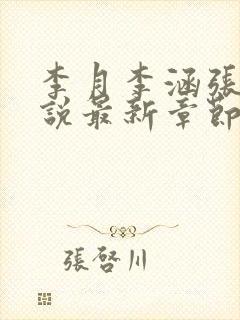 李月李涵張
說最新章節
張啓川